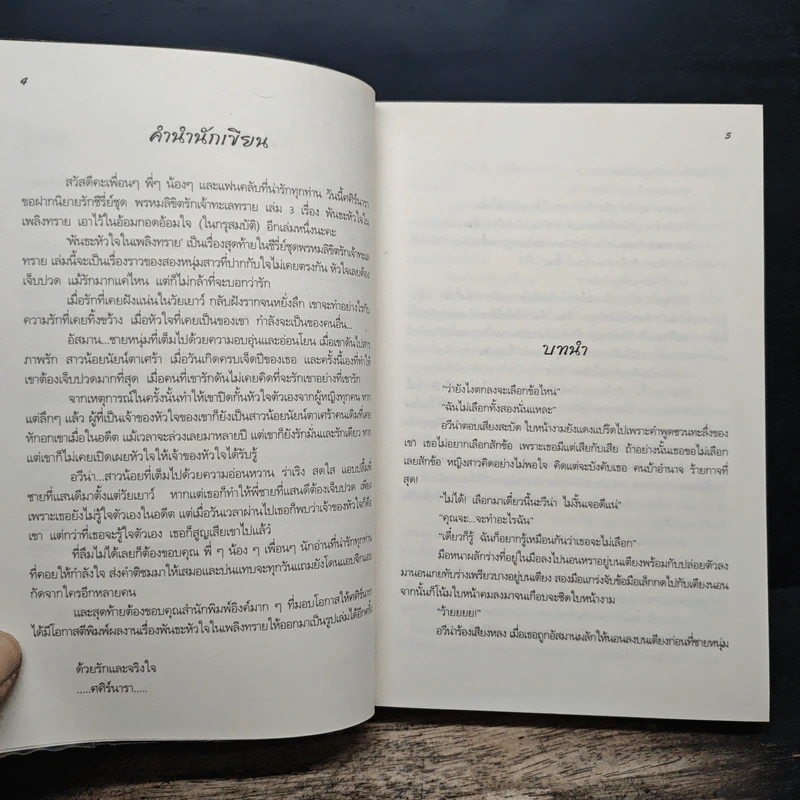 4
คำนำนักเขียน
สวัสดีคะเพื่อนๆ พี่ๆ น้องๆ และแฟนคลับที่น่ารักทุกท่าน วันนี้คศิร์นารา
ขอฝากนิยายรักซีรี่ย์ชุด พรหมลิขิตรักเจ้าทะเลทราย เล่ม 3 เรื่อง พันธะหัวใจใน
เพลิงทราย เอาไว้ในอ้อมกอดอ้อมใจ (ในกรุสมบัติ) อีกเล่มหนึ่งนะคะ
'พันธะหัวใจในเพลิงทราย' เป็นเรื่องสุดท้ายในซีรี่ย์ชุดพรหมลิขิตรักเจ้าทะเล
ทราย เล่มนี้จะเป็นเรื่องราวของสองหนุ่มสาวที่ปากกับใจไม่เคยตรงกัน หัวใจเลยต้อง
เจ็บปวด แม้รักมากแค่ไหน แต่ก็ไม่กล้าที่จะบอกว่ารัก
เมื่อรักที่เคยฝังแน่นในวัยเยาว์ กลับฝังรากจนหยั่งลึก เขาจะทำอย่างไรกับ
ความรักที่เคยทิ้งขว้าง เมื่อหัวใจที่เคยเป็นของเขา กำลังจะเป็นของคนอื่น...
อัสมาน...ชายหนุ่มที่เต็มไปด้วยความอบอุ่นและอ่อนโยน เมื่อเขาดันไปสาร
ภาพรัก สาวน้อยนัยน์ตาเศร้า เมื่อวันเกิดครบเจ็ดปีของเธอ และครั้งนี้เองที่ทำให้
เขาต้องเจ็บปวดมากที่สุด เมื่อคนที่เขารักดันไม่เคยคิดที่จะรักเขาอย่างที่เขารัก
จากเหตุการณ์ในครั้งนั้นทำให้เขาปิดกั้นหัวใจตัวเองจากผู้หญิงทุกคน หาก
แต่ลึกๆ แล้ว ผู้ที่เป็นเจ้าของหัวใจของเขาก็ยังเป็นสาวน้อยนัยน์ตาเศร้าคนเดิมที่เคย
หักอกเขาเมื่อในอดีต แม้เวลาจะล่วงเลยมาหลายปี แต่เขาก็ยังรักมั่นและรักเดียว หาก
แต่เขาก็ไม่เคยเปิดเผยหัวใจให้เจ้าของหัวใจได้รับรู้
อวีน่า...สาวน้อยที่เต็มไปด้วยความอ่อนหวาน ร่าเริง สดใส แอบปลื้มพี่
ชายที่แสนดีมาตั้งแต่วัยเยาว์ หากแต่เธอก็ทำให้พี่ชายที่แสนดีต้องเจ็บปวด เพียง
เพราะเธอยังไม่รู้ใจตัวเองในอดีต แต่เมื่อวันเวลาผ่านไปเธอก็พบว่าเจ้าของหัวใจก็คือ
เขา แต่กว่าที่เธอจะรู้ใจตัวเอง เธอก็สูญเสียเขาไปแล้ว
ที่ลืมไม่ได้เลยก็ต้องขอบคุณ พี่ ๆ น้อง ๆ เพื่อนๆ นักอ่านที่น่ารักทุกท่าน
ที่คอยให้กำลังใจ ส่งคำติชมมาให้เสมอและบ่นแทบจะทุกวันแถมยังโดนแอบจิกแอบ
กัดจากใครอีกหลายคน
และสุดท้ายต้องขอบคุณสำนักพิมพ์อิงค์มาก ๆ ที่มอบโอกาสให้คศิร์นารา
ได้มีโอกาสตีพิมพ์ผลงานเรื่องพันธะหัวใจในเพลิงทรายให้ออกมาเป็นรูปเล่มได้อีกครั้ง
ด้วยรักและจริงใจ
.....ศศิร์นารา.....
5
บทนำ
"ว่ายังไงตกลงจะเลือกข้อไหน"
"ฉันไม่เลือกทั้งสองนั่นแหละ"
อวีน่าตอบเสียงสะบัด ใบหน้างามยังแดงแปร๊ดไปเพราะคำพูดชวนทะลึ่งของ
เขา เธอไม่อยากเลือกสักข้อ เพราะเธอมีแต่เสียกับเสีย ถ้าอย่างนั้นเธอขอไม่เลือก
เลยสักข้อ หญิงสาวคิดอย่างไม่พอใจ คิดแต่จะบังคับเธอ คนบ้าอำนาจ ร้ายกาจที่
สุด!
"ไม่ได้! เลือกมาเดี๋ยวนี้นะวีน่า ไม่งั้นเจอดีแน่"
"คุณจะ...จะทำอะไรฉัน"
"เดี๋ยวก็รู้ ฉันก็อยากรู้เหมือนกันว่าเธอจะไม่เลือก"
มือหนาผลักร่างที่อยู่ในมือลงไปนอนหราอยู่บนเตียงพร้อมกับปล่อยตัวลง
มานอนเกยทับร่างเพรียวบางอยู่บนเตียง สองมือแกร่งจับข้อมือเล็กกดไปกับเตียงนอน
จากนั้นก็โน้มใบหน้าคมลงมาจนเกือบจะชิดใบหน้างาม
"ว้ายยยย!"
อวีน่าร้องเสียงหลง เมื่อเธอถูกอัสมานผลักให้นอนลงบนเตียงก่อนที่ชายหนุ่ม